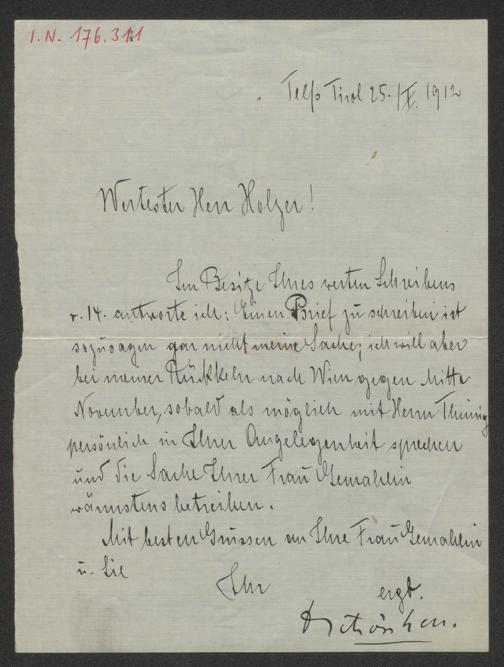 I.N. 176.311
Telfs Tirol 25./X. 1912
Wertester Herr Holzer!
Im Besitze Ihres werten Schreibens
v. 14. antworte ich: Einen Brief zu schreiben ist
sozusagen gar nicht meine Sache; ich will aber
bei meiner Rückkehr nach Wien, gegen Mitte
November, sobald als möglich mit Herrn Thimig
persönlich in Ihrer Angelegenheit sprechen
und die Sache Ihrer Frau Gemahlin
wärmstens betreiben.
Mit besten Grüssen an Ihre Frau Gemahlin
u. Sie
Ihr ergb.